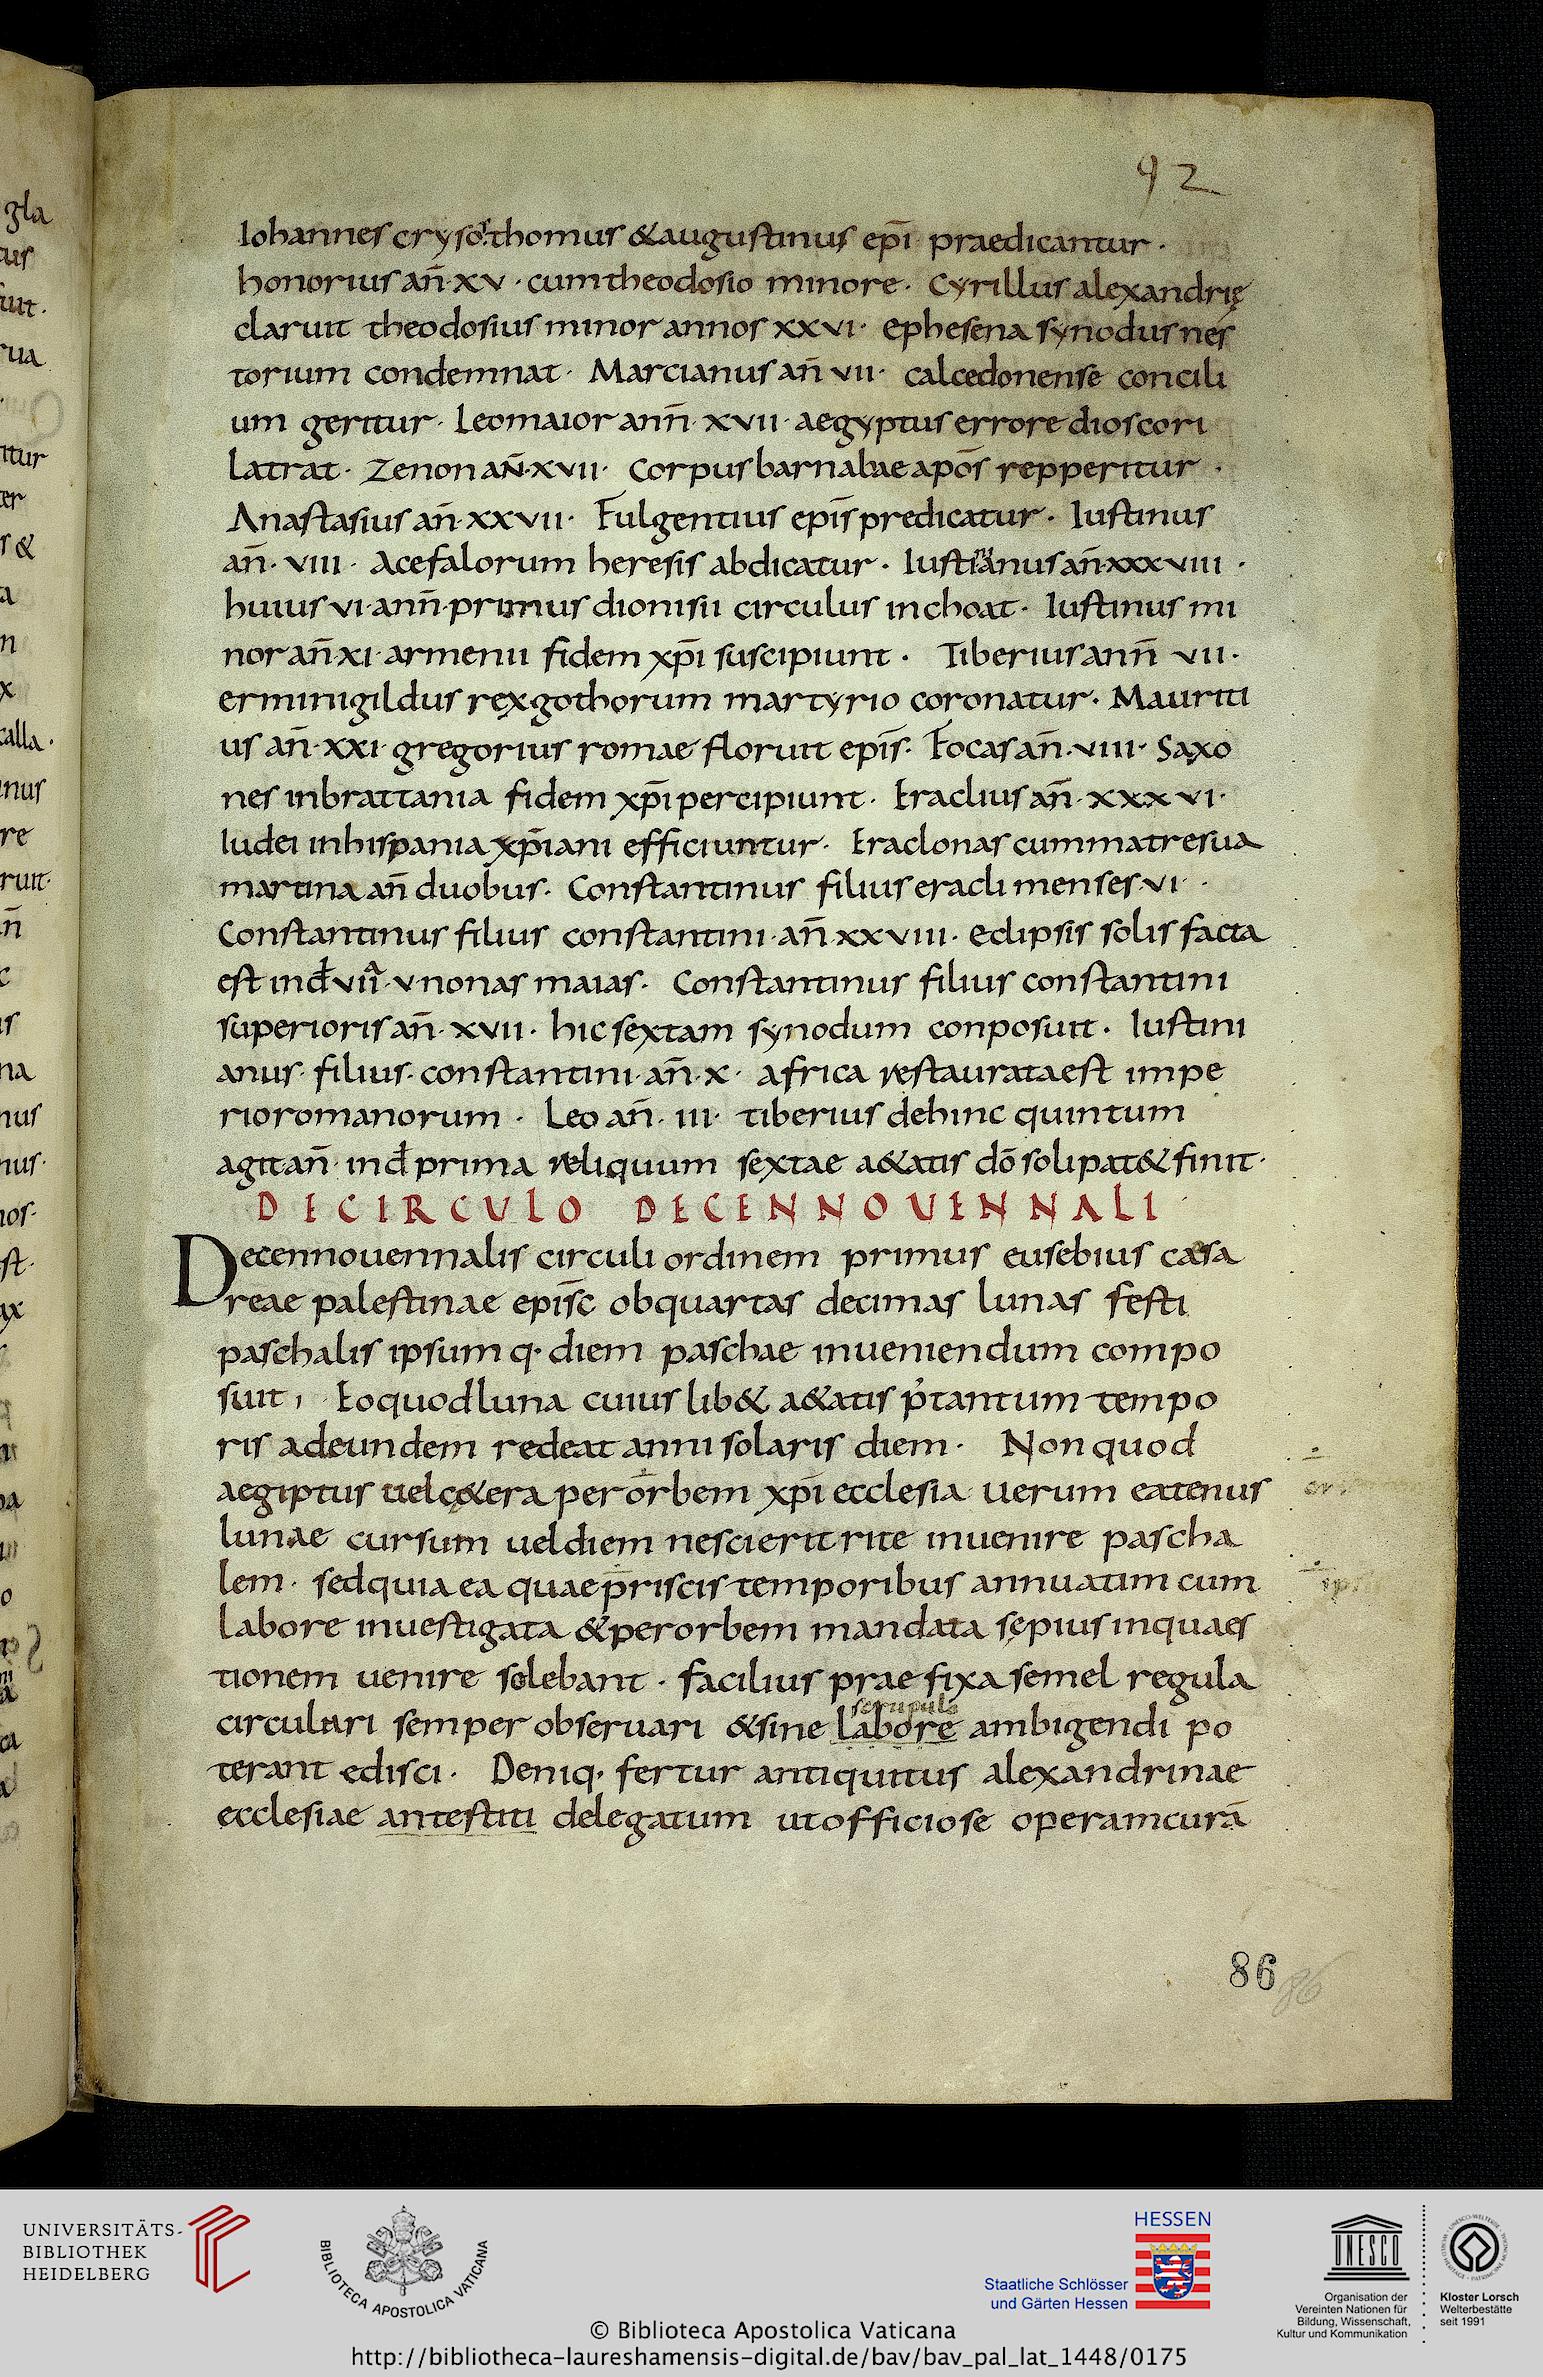 92
Iohannes crysosthomus &augustinus ep̄i praedicantur ·
honorius an̄·xv · cumtheodosio minore · Cyrillus alexandrię
claruit theodosius minor annos xxvi · ephesena synodus nes
torium condemnat · Marcianus an̄ vii · calcedonense concili
um geritur · Leomaior ann̄· xvii · aegyptus errore dioscori
latrat · Zenon an̄·xvii · Corpus barnabae apos̄ repperitur ·
Anastasius an̄·xxvii · Fulgentius epis̄ predicatur · Iustinus
an̄· viii · Acefalorum heresis abdicatur · Iustinianus an̄·xxxviii ·
huius vi·ann̄·primus dionisii circulus inchoat · Iustinus mi
nor an̄·xi·armenii fidem xp̄i suscipiunt · Tiberius ann̄ vii·
erminigildus rex gothorum martyrio coronatur · Mauriti
us an̄·xxi·gregorius romae floruit epis̄· Focas an̄·viii· Saxo
nes inbrattania fidem xp̄i percipiunt · Eraclius an̄·xxxvi·
Iudei inhispania xp̄iani efficiuntur · Eraclonas cummatresua
martina an̄ duobus · Constantinus filius eracli menses·vi ·
Constantinus filius constantini·an̄·xxviii· eclipsis solis facta
est inđ viiᵃ·v nonas maias · Constantinus filius constantini
superioris an̄·xvii· hic sextam synodum conposuit · Iustini
anus · filius · constantini·an̄·x· africa restaurataest impe
rioromanorum · Leo an̄· iii· tiberius dehinc quintum
agit an̄· inđ prima reliquum sextae a&atis dō soli pat& finit·
DECIRCULO DECENNOUENNALI
Decennouennalis circuli ordinem primus eusebius caesa
reae palestinae epis̄c obquartas decimas lunas festi
paschalis ipsumq· diem paschae inueniendum compo
suit, Eoquodluna cuius lib& a&atis p̓tantum tempo
ris adeundem redeat anni solaris diem · Non quod
aegiptus uel c&era per orbem xp̄i ecclesia uerum eatenus
lunae cursum ueldiem nescierit rite inuenire pascha
lem · sedquia ea quae priscis temporibus annuatim cum
labore inuestigata &perorbem mandata sępius inquaes
tionem uenire solebant · facilius prae fixa semel regula
scrupulo
circulari semper obseruari &sine labore ambigendi po
terant edisci · Deniq· fertur antiquitus alexandrinae
ecclesiae antestiti delegatum ut officiose operamcurā
86
86
UNIVERSITÄTS-
BIBLIOTHEK
HEIDELBERG
BIBLIOTECA APOSTOLICA VATICANA
HESSEN
Staatliche Schlösser
und Gärten Hessen
UNESCO
Organisation der
Vereinten Nationen für
Bildung, Wissenschaft,
Kultur und Kommunikation
Kloster Lorsch
Welterbestätte
seit 1991
© Biblioteca Apostolica Vaticana
http://bibliotheca-laureshamensis-digital.de/bav/bav_pal_lat_1448/0175